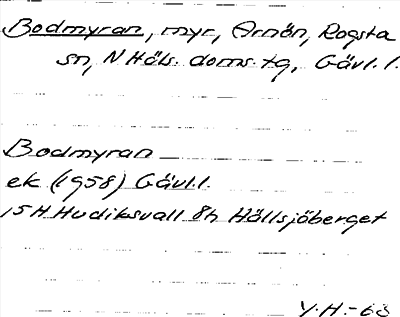 Bodmyran, myr, Arnön, Rogsta
sn, N Häls. doms. tg, Gävl. l.
Bodmyran
ek (1958) Gävl. l.
15H Hudiksvall 8h Hällsjöberget
Y.H.-63